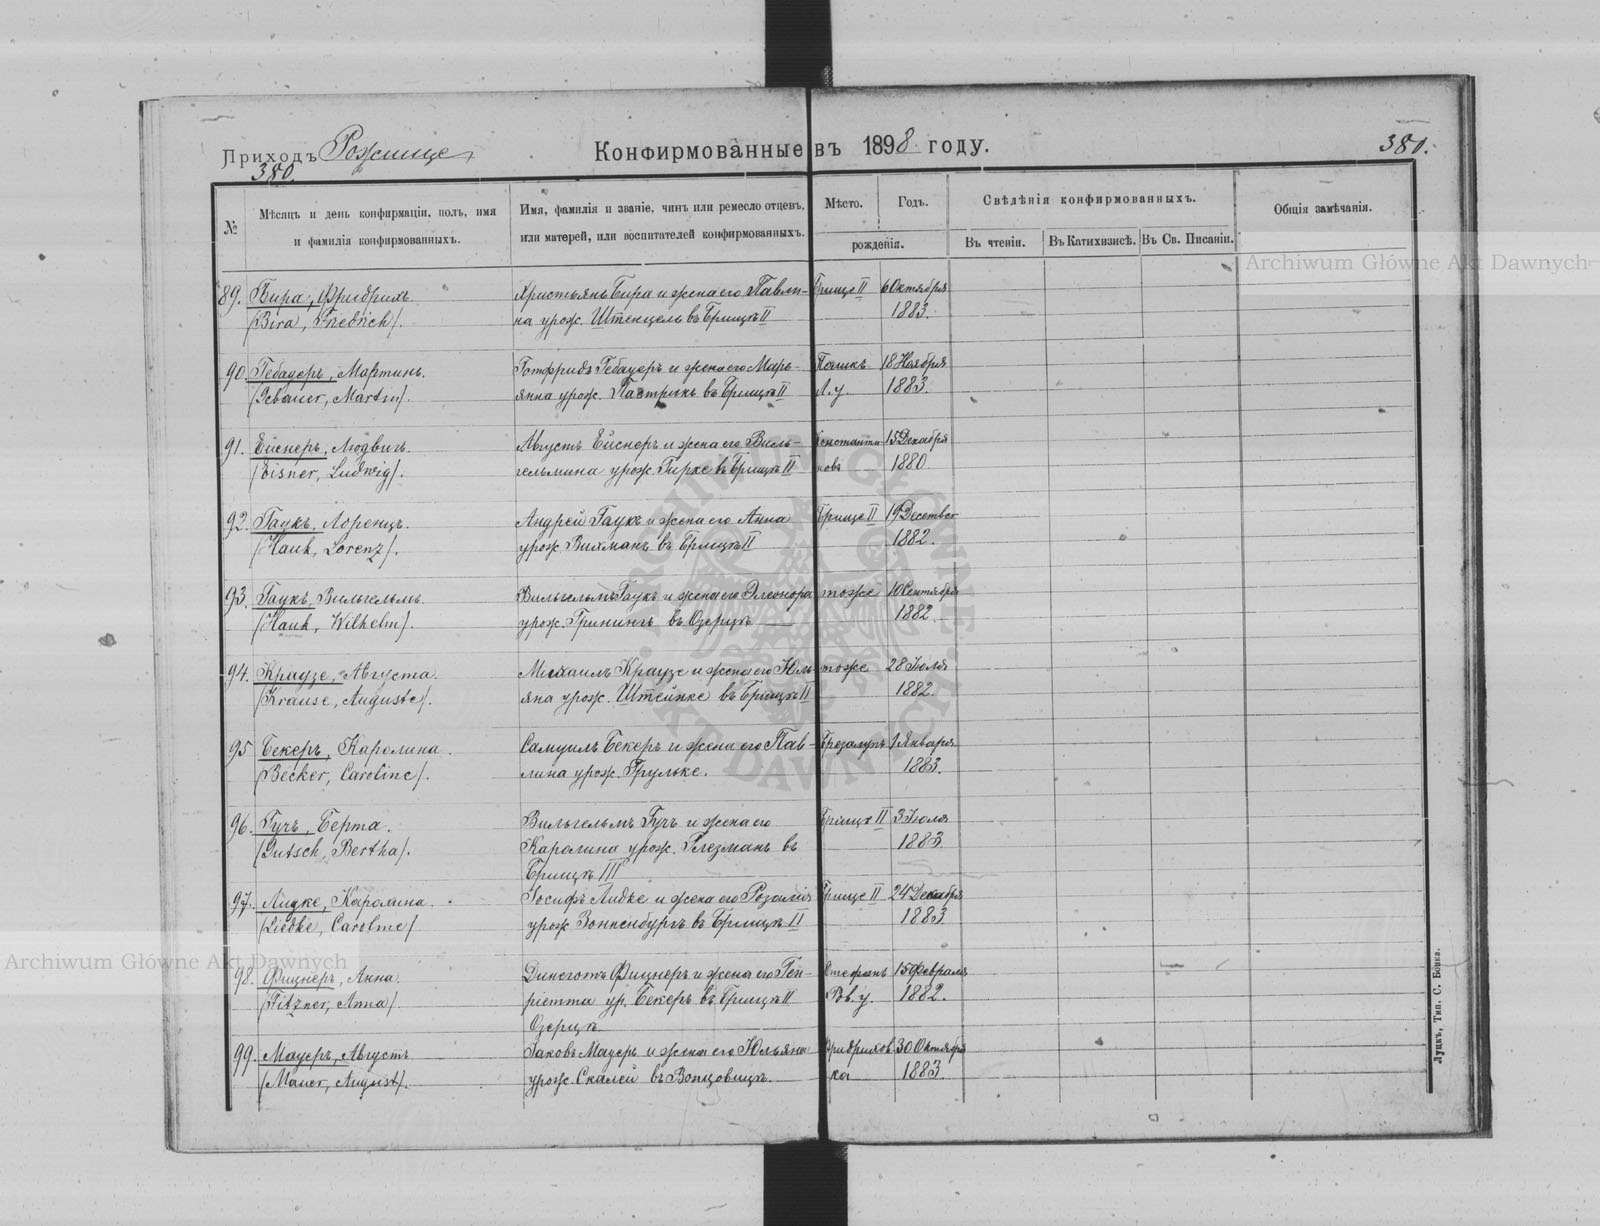 Приходъ Рожище Конфирмованные въ 1898 году. 380.
380
№ Мѣсяцъ и день конфирмаціи, полъ, имя и фамилія конфирмованныхъ.
Имя, фамилія и званіе, чинъ или ремесло отцевъ, или матерей, или воспитателей конфирмованныхъ.
Мѣсто. Годъ. рожденія.
Свѣдѣнія конфирмованныхъ.
Въ чтеніи. Въ Катихизисѣ. Въ Св. Писаніи.
Общія замѣчанія.
Archiwum Główne Akt Dawnych
89. Бира, Фридрихъ. Христьянъ Бира и жена его Павли- Брище II 6 Октября
(Bira, Friedrich). на урож. Штенцель въ Брищѣ II 1883.
90. Гебауеръ, Мартинъ. Готфридъ Гебауеръ и жена его Марь- 18 Ноября
(Gebauer, Martin). янна урож. въ Брищѣ II Л. у. 1883.
91. Ейснеръ, Людвигъ. Августъ Ейснеръ и жена его Виль- Константи 15 Декабря
(Eisner, Ludwig). гельмина урож. Гирке въ Брищѣ II новъ 1880
92. Гаукъ, Лоренцъ. Андрей Гаукъ и жена его Анна Брище II 19 December
(Hauk, Lorenz). урож. Вихманъ въ Брищѣ II 1882.
93. Гаукъ, Вильгельмъ. Вильгельмъ Гаукъ и жена его Элеонора тоже 10 Сентября
(Hauk, Wilhelm). урож. Грининъ въ Озерцѣ 1882.
94. Краузе, Августа. Михаилъ Краузе и жена его Юль- тоже 28 Іюля
(Krause, Auguste). яна урож. Штейнке въ Брищѣ II 1882.
95 Бекеръ, Каролина. Самуилъ Бекеръ и жена его Пав- 1 Января
(Becker, Caroline). лина урож. Грульке. 1883.
96. Гучъ, Берта. Вильгельмъ Гучъ и жена его Брищѣ II 3 Іюля
(Gutsch, Bertha). Каролина урож. Глезманъ въ 1883.
Брищѣ III
97. Лидке, Каролина. Іосифъ Лидке и жена его Розалія Брище II 24 Декабря
(Liedke, Caroline) урож. Зонненбургъ въ Брищѣ II 1883.
Archiwum Główne Akt Dawnych
98. Фицнеръ, Анна. Динготъ Фицнеръ и жена его Ген- Стефанъ 15 Февраля
(Fitzner, Anna). ріетта ур. Бекеръ въ Брищѣ II Ров. у. 1882.
Озерцѣ
99. Мауеръ, Августъ Іаковъ Мауеръ и жена его Юльяна Фридрихов 30 Октября
(Mauer, August). урож. Скалей въ ка 1883.
Луцкъ, Тип. С. Бонка.
ARCHIWUM GŁÓWNE AKT DAWNYCH